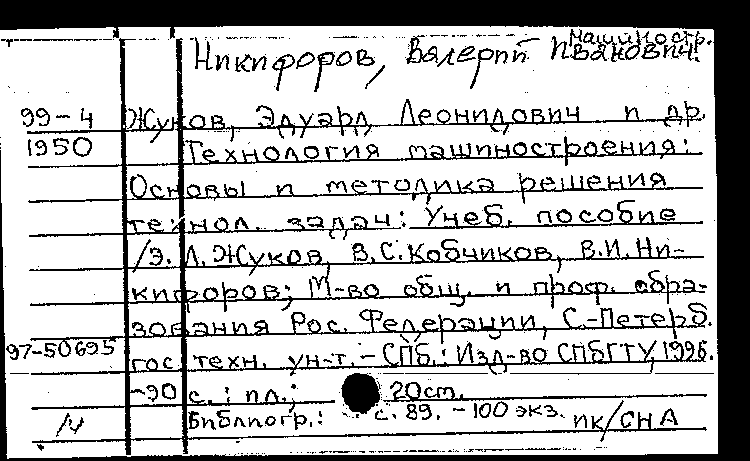 машиностр.
Никифоров, Валерий Иванович.
99-4 Жуков, Эдуард Леонидович и др.
1950 Технология машиностроения:
Основы и методика решения
технол. задач: Учеб. пособие
/Э. Л. Жуков, В.С. Кобчиков, В.И. Ни-
кифоров; М-во общ. и проф. обра-
зования Рос. Федерации, С.-Петерб.
97-50695 гос. техн. ун-т. - СПб.: Изд-во СПбГТУ, 1996.
-90 с.: ил.; 20 см.
Библиогр.: с. 89. - 100 экз. ПК/СНА